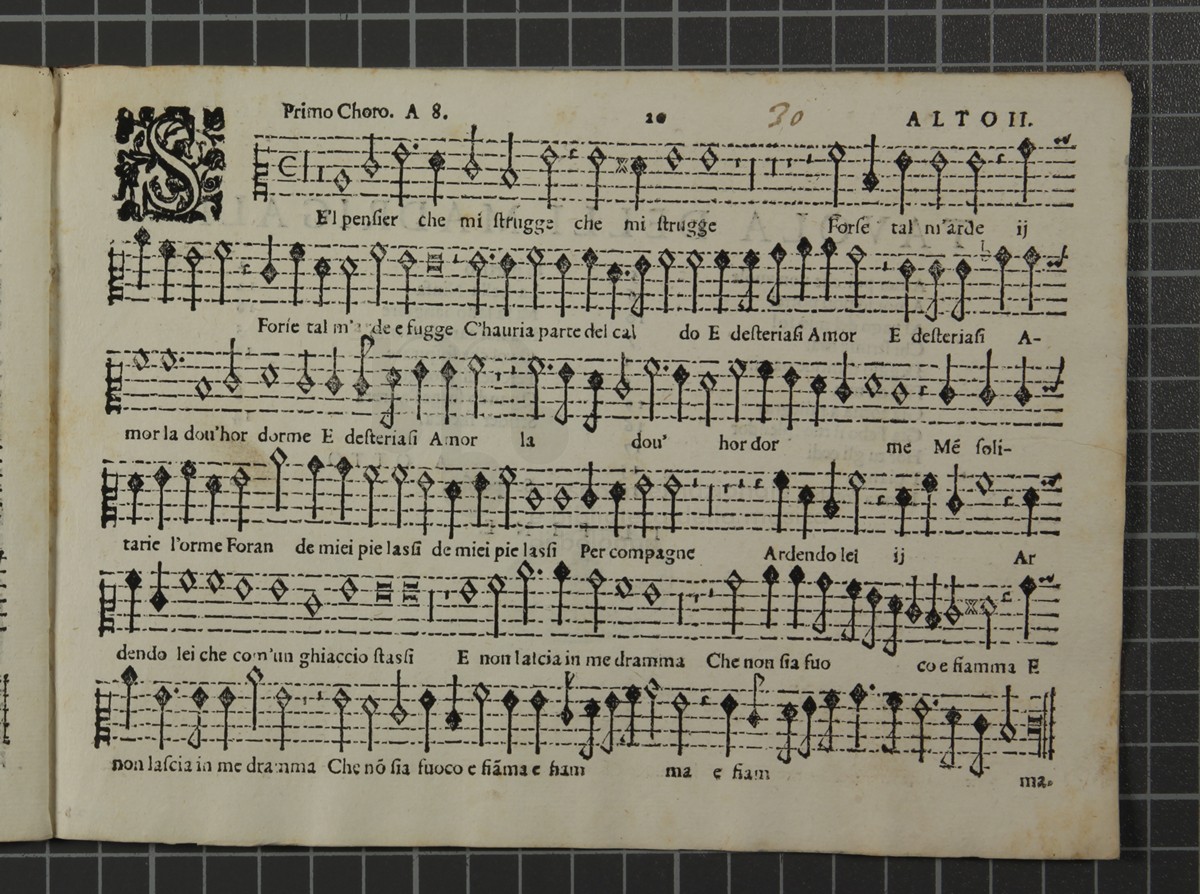 Primo Choro. A 8. 20 30 ALTO II.
S E'l pensier che mi strugge che mi strugge Forse tal m'arde ij
Forse tal m'arde e fugge C'hauria parte del cal do E desteriasi Amor E desteriasi A-
mor la dou'hor dorme E desteriasi Amor la dou' hor dor me Mẽ soli-
tarie l'orme Foran de miei pie lassi de miei pie lassi Per compagne Ardendo lei ij Ar
dendo lei che com'un ghiaccio stassi E non lascia in me dramma Che non sia fuo co e fiamma E
non lascia in me dramma Che nõ sia fuoco e fiãma e fiam ma e fiam
ma.